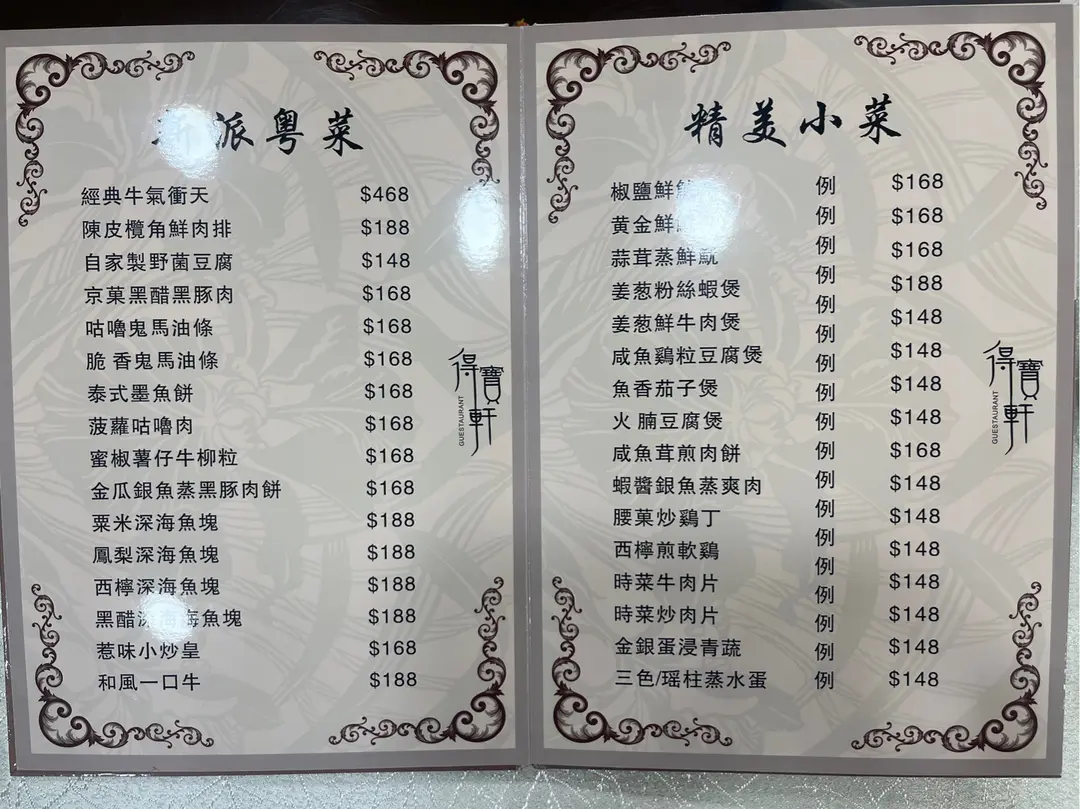 新派粤菜
經典牛氣衝天 $468
陳皮欖角鮮肉排 $188
自家製野菌豆腐 $148
京菓黑醋黑豚肉 $168
咕嚕鬼馬油條 $168
脆香鬼馬油條 $168
泰式墨魚餅 $168
菠蘿咕嚕肉 $168
蜜椒薯仔牛柳粒 $168
金瓜銀魚蒸黑豚肉餅 $168
粟米深海魚塊 $188
鳳梨深海魚塊 $188
西檸深海魚塊 $188
黑醋深海魚塊 $188
惹味小炒皇 $168
和風一口牛 $188
得寶軒
GUESTAURANT
精美小菜
椒鹽鮮 例 $168
黄金鮮 例 $168
蒜茸蒸鮮魷 例 $168
姜葱粉絲蝦煲 例 $188
姜葱鮮牛肉煲 例 $148
咸魚鷄粒豆腐煲 例 $148
魚香茄子煲 例 $148
火腩豆腐煲 例 $148
咸魚茸煎肉餅 例 $168
蝦醬銀魚蒸爽肉 例 $148
腰菓炒鷄丁 例 $148
西檸煎軟鷄 例 $148
時菜牛肉片 例 $148
時菜炒肉片 例 $148
金銀蛋浸青蔬 例 $148
三色/瑶柱蒸水蛋 例 $148
得寶軒
GUESTAURANT